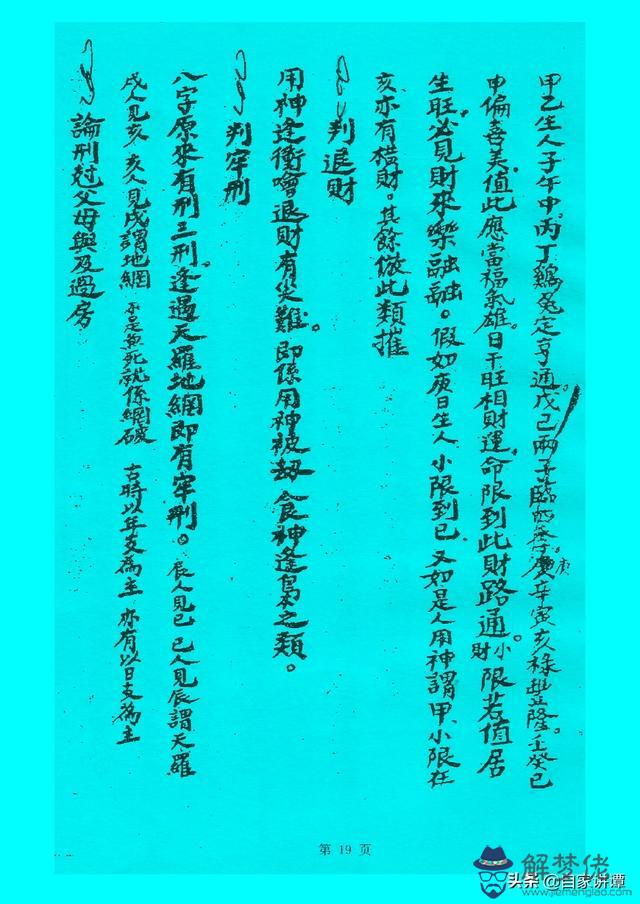 甲乙生人子午中。丙丁鷄兔定亨通。戊己兩干臨四季。庚辛寅亥祿豊隆。壬癸巳
庚
申偏喜美。值此應當福氣雄。日干旺相財運。命限到此財路通。財小限若值居
生旺。必見財來樂融融。假如庚日生人小限到巳、又如是人用神謂甲、小限在
亥、亦有橫財。其餘倣此類推
判退財
用神逢衝嚕退財有災難。即係用神被刼食神逢梟之類。
判牢刑
八字原來有刑三刑。逢遇天羅地網即有牢刑。辰人見巳巳人見辰謂天羅
戌人見亥亥人見戌謂地網 不是真死就係網破 古時以年支為主 亦有以日支為主
論刑尅父母與及過房
第 19 页
解梦佬
www.jiemenglao.com
头条 @自家讲谭